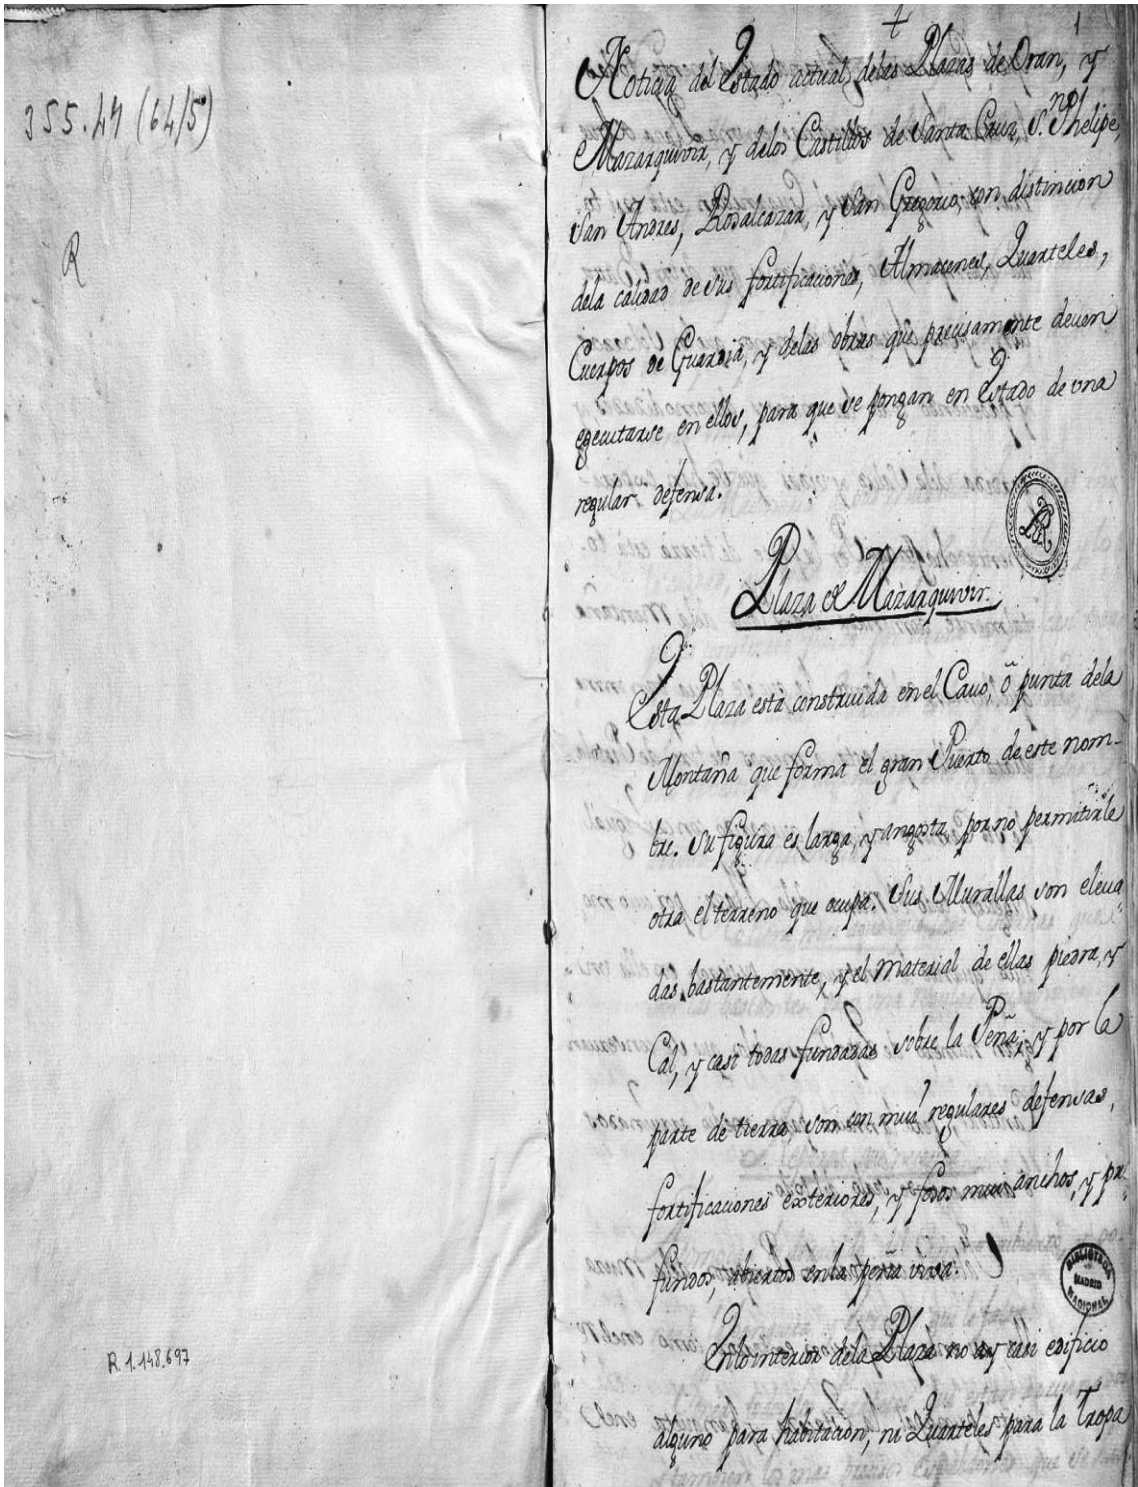 355.47 (64/5)
R
R. 1.148.697
1
Noticia del Estado actual delas Plazas de Oran, y
Mazarquivir, y delos Castillos de Santa Cruz, S.n Phelipe,
San Andres, Rosalcazar, y San Gregorio, con distincion
dela calidad de sus fortificaciones, Almacenes, Quarteles,
Cuerpos de Guardia, y delas obras que precisamente deven
egecutarse en ellos, para que se pongan en Estado de una
regular defensa.
Plaza de Mazarquivir.
Esta Plaza està construida en el Cavo, ô punta dela
Montaña que forma el gran Puerto de este nom-
bre. Su figura es larga, y angosta, por no permitirle
otra el terreno que ocupa. Sus Murallas son eleva-
das bastantemente, y el material de ellas piedra, y
Cal, y casi todas fundadas sobre la Peña; y por la
parte de tierra, son con mui regulares defensas,
fortificaciones exteriores, y fosos mui anchos, y pro-
fundos, abiertos en la peña viva.
BIBLIOTECA NACIONAL
MADRID
En lo interior dela Plaza no ay casi edificio
alguno para habitacion, ni Quarteles para la Tropa